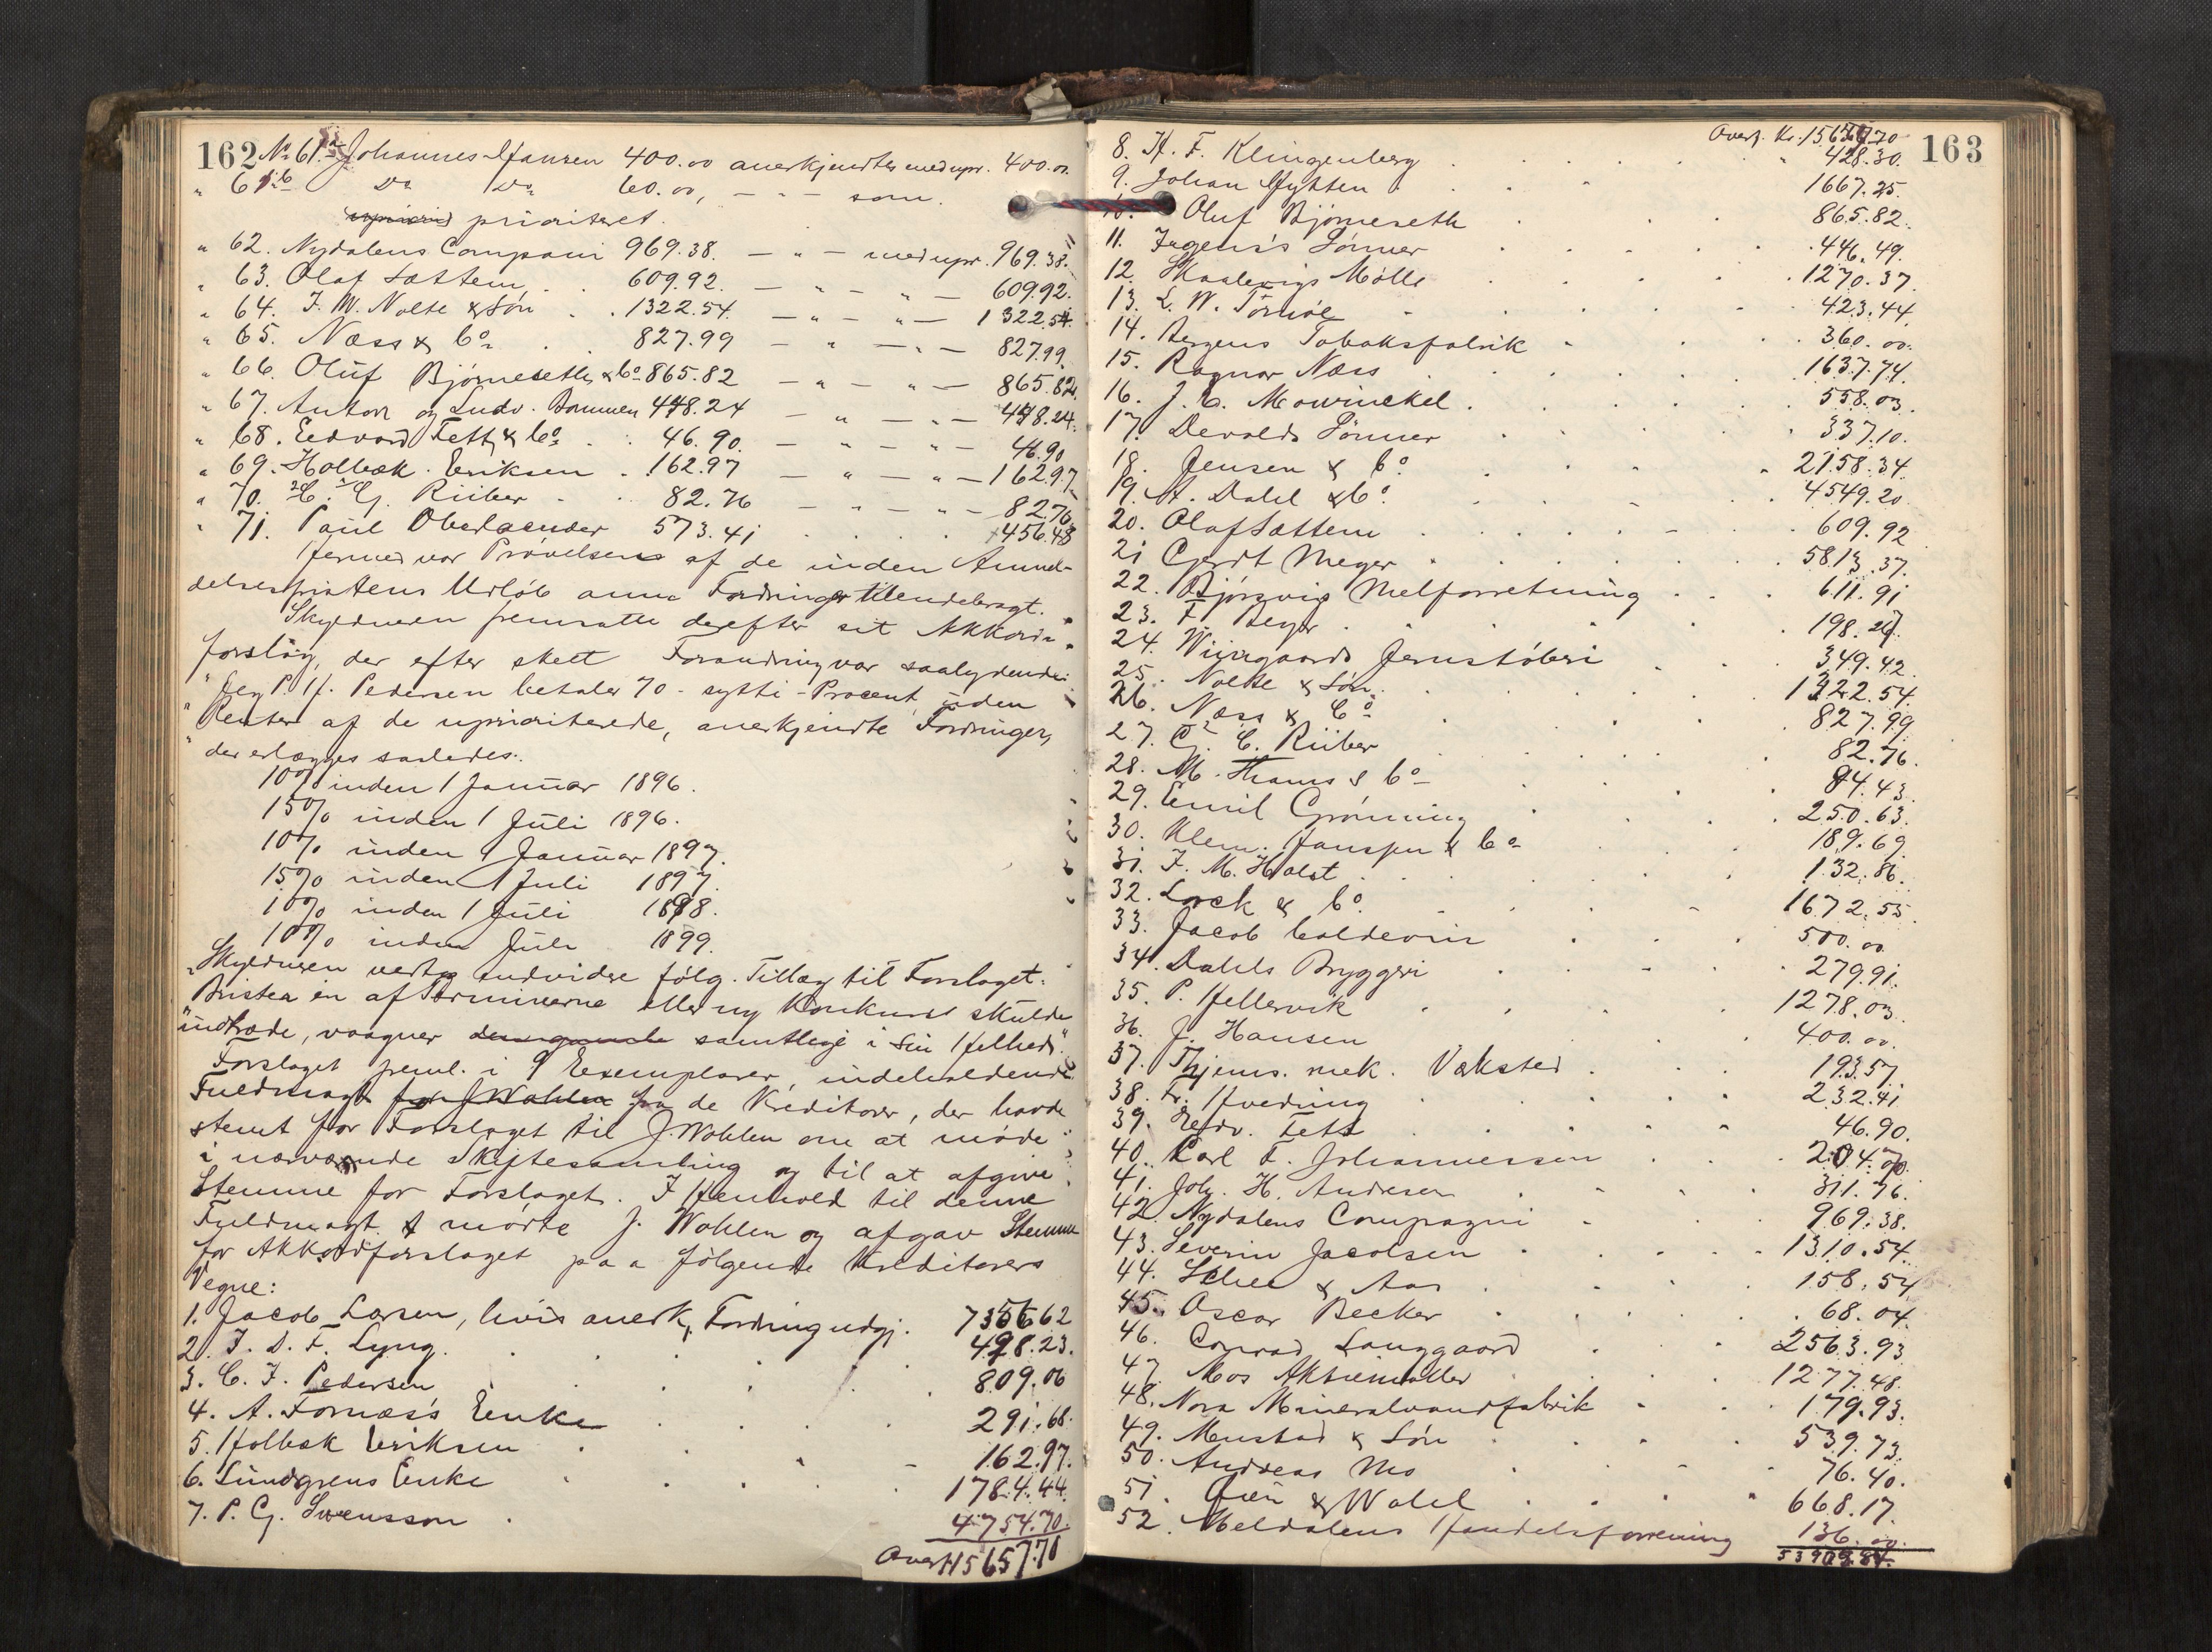 162 No 61.a Johannes Hansen 400.00 anerkjendtes med upr. 400.00.
" 61b Do Do 60.00, — " — som
upriorit prioritet.
" 62. Nydalens Compani 969.38. — " — med upr. 969.38.
" 63. Olaf Sættem . . 609.92. — " — " — 609.92.
" 64. F. W. Nolte & Søn . . 1322.54. — " — " — 1322.54.
" 65. Næss & Co . . 827.99 — " — " — 827.99.
" 66. Oluf Bjørneseth & Co 865.82 — " — " — 865.82.
" 67. Anton og Ludv. Bommen 448.24 — " — " — 448.24.
" 68. Edvard Fett & Co . . 46.90. — " — " — 46.90
" 69. Holbæk Eriksen . 162.97 — " — " — 162.97
" 70. C. G. Riiber . . 82.76 — " — " — 82.76
" 71. Paul Oberlaender 573.41 . . . . 456.48
Hermed var Prøvelsen af de inden Anmel-
delsesfristens Udløb anm. Fordringer tilendebragt.
Skyldneren fremsatte derefter sit Akkords-
forslag, der efter skeet Forandring var saalydende:
"Jeg P. H. Pedersen betaler 70 - sytti - Procent, uden
"Renter af de uprioriterede, anerkjendte Fordringer,
"der erlægges saaledes:
10% inden 1 Januar 1896.
15% inden 1 Juli 1896.
10% inden 1 Januar 1897.
15% inden 1 Juli 1897.
10% inden 1 Juli 1898.
10% inden Juli 1899.
Skyldneren vedtog endvidere følg. Tillæg til Forslaget:
"Brister en af Terminerne eller ny Konkurs skulde
"indtræde, vaagner samtlige i sin Helhed".
Forslaget freml. i 9 Exemplarer, indeholdende
Fuldmagt for J Wahlen fra de Kreditorer, der havde
stemt for Forslaget til J. Wohlen om at møde
i nærværende Skiftesamling og til at afgive
Stemme for Forslaget. I Henhold til denne
Fuldmagt mødte J. Wohlen og afgav Stemme
for Akkordforslaget paa følgende Kreditorers
Vegne:
1. Jacob Larsen, hvis anerk. Fordring udgj. 7356.62
2. J. D. F. Lyng. . . . . 498.23.
3. C. F. Pedersen . . . . 809.06
4. A. Fornæs's Enke . . . . 291.68.
5. Holbæk Eriksen . . . . 162.97.
6. Lundgrens Enke . . . . 1784.44.
7. P. G. Svensson . 4754.70.
Overf. 15657.70
Overf. Kr. 15657.70 163
8. H. F. Klingenberg . . . . " 428.30.
9. Johan Hykken . . . . 1667.25.
10. Oluf Bjørneseth . . . . 865.82.
11. Jugens's Sønner . . . . 446.49.
12. Skaalevigs Mølle . . . . 1270.37.
13. L. W. Tornøe . . . . 423.44.
14. Bergens Tobaksfabrik . . . . 360.00.
15. Ragnar Næss . . . . 1637.74.
16. J. E. Mowinckel . . . . 558.03.
17. Devolds Sønner . . . . 337.10.
18. Jensen & Co . . . . 2158.34.
19. A. Dahl & Co . . . . 4549.20
20. Olaf Sættem . . . . 609.92
21 Gerdt Meyer . . . . 5813.37.
22. Bjørsvigs Melforretning . . . . 611.91
23. F Beyer . . . . 198.27.
24. Wingaards Jernstøberi . . . . 349.42.
25. Nolte & Søn . . . . 1322.54.
26. Næss & Co . . . . 827.99
27. G. C. Riiber . . . . 82.76.
28. M. Thams & Co . . . . 84.43
29. Emil Grønning . . . . 250.63.
30. Klem. Hanssen & Co . . . . 189.69
31. F. M. Holst . . . . 132.86.
32. Lorck & Co. . . . . 1672.55
33. Jacob Coldevin . . . . 500.00
34. Dahls Bryggeri . . . . 279.91.
35. P. Hellesvik . . . . 1278.03.
36. J. Hansen . . . . 400.00.
37. Thjems. mek. Værksted . . . . 193.57.
38. Fr. Hvedning . . . . 232.41
39. Edv. Fett . . . . 46.90.
40. Carl F. Johannessen . . . . 204.70.
41. Joh. H. Andresen . . . . 311.76.
42. Nydalens Compagni . . . . 969.38.
43. Severin Jacobsen . . . . 1310.54.
44. Schee & Aas . . . . 158.54
45. Oscar Becker . . . . 68.04.
46. Conrad Langgaard . . . . 2563.93
47. Mos Aktiemøller . . . . 1277.48.
48. Nora Mineralvandfabrik . . . . 179.93.
49. Mustad & Søn . . . . 539.73.
50. Andreas Mo . . . . 76.40.
51. Øien & Wahl . . . . 668.17.
52. Meldalens Handelsforening 136.00.
53909.84.